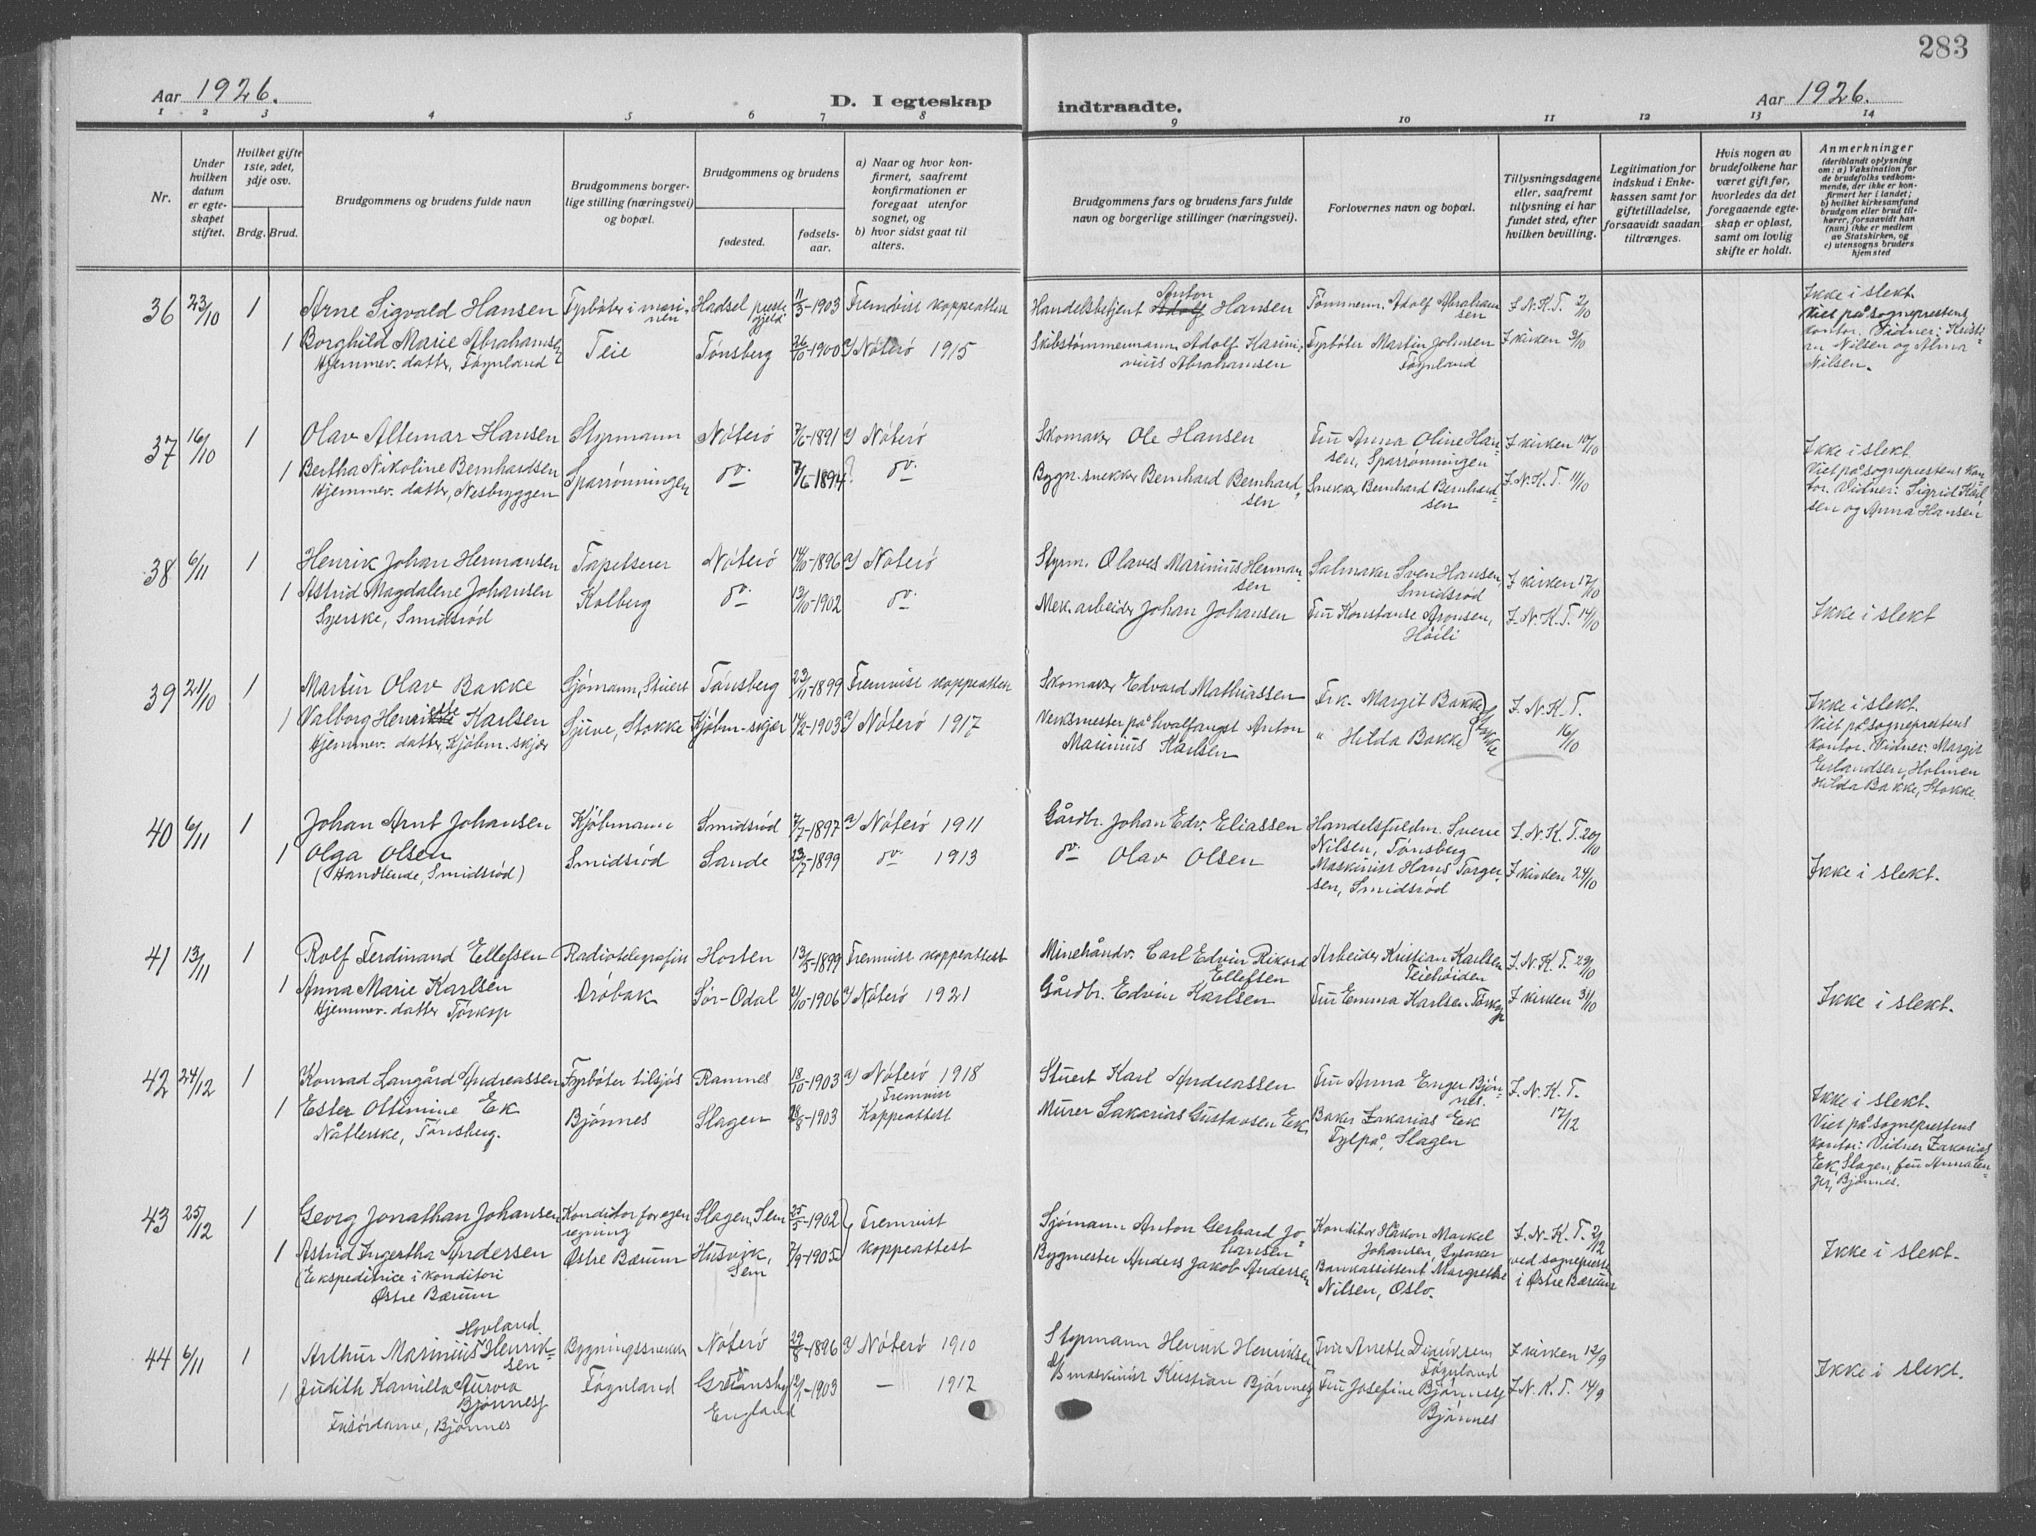 283
Aar 1926.
D. I egteskap
indtraadte.
Aar 1926.
1 2 3 4 5 6 7 8 9 10 11 12 13 14
Nr.
Under hvilken datum er egteskapet stiftet.
Hvilket gifte 1ste, 2det, 3dje osv.
Brdg. Brud.
Brudgommens og brudens fulde navn
Brudgommens borgerlige stilling (næringsvei) og bopæl.
Brudgommens og brudens
fødested.
fødselsaar.
a) Naar og hvor konfirmert, saafremt konfirmationen er foregaat utenfor sognet, og
b) hvor sidst gaat til alters.
Brudgommens fars og brudens fars fulde navn og borgerlige stillinger (næringsvei).
Forlovernes navn og bopæl.
Tillysningsdagene eller, saafremt tillysning ei har fundet sted, efter hvilken bevilling.
Legitimation for indskud i Enkekassen samt for giftetilladelse, forsaavidt saadan tiltrænges.
Hvis nogen av brudefolkene har været gift før, hvorledes da det foregaaende egteskap er opløst, samt om lovlig skifte er holdt.
Anmerkninger
(deriblandt oplysning om: a) Vaksination for de brudefolks vedkommende, der ikke er konfirmert her i landet; b) hvilket kirkesamfund brudgom eller brud tilhører, forsaavidt han (hun) ikke er medlem av Statskirken, og c) utensogns bruders hjemsted
36 23/10 1 Arne Sigvald Hansen Fyrbøter i marinen Hadsel prestegjeld 11/3-1903 Fremvist koppeattest Handelsbetjent Anton Hansen Tømmerm. Adolf Abrahamsen I N.K.T. 2/10 Ikke i slekt.
1 Borghild Marie Abrahamsen Teie Tønsberg 26/10-1900 a) Nøterø 1915 Skibstømmermann Adolf Karinius Abrahamsen Fyrbøter Martin Johnsen Føynland I kirken 3/10 Viet på sogneprestens kontor. Vidner: Kristian Nilsen og Alma Nilsen.
Hjemmev. datter, Føynland
37 16/10 1 Olav Altemar Hansen Styrmann Nøterø 7/6-1891 a) Nøterø Skomaker Ole Hansen Fru Anna Oline Hansen, Sparrønningen I kirken 10/10 Ikke i slekt
1 Bertha Nikoline Bernhardsen Sparrønningen do. 7/6-1894 do. Bygn. snekker Bernhard Bernhardsen Snekker Bernhard Bernhardsen I.N.K.T. 11/10 Viet på sogneprestens kontor. Vidner: Sigrid Karlsen og Anna Hansen
Hjemmev. datter, Nesbryggen
38 6/11 1 Henrik Johan Hermansen Tapetserer Nøterø 14/10-1896 a) Nøterø Styrm. Olaves Marinius Hermansen Salmaker Sven Hansen, Smidsrød I kirken 17/10
1 Astrid Magdalene Johansen Kolberg do. 13/10-1902 do. Mek. arbeider Johan Johansen Fru Konstanse Aronsen, Høili I.N.K.T. 14/10 Ikke i slekt
Syerske, Smidsrød
39 21/10 1 Martin Olav Bakke Sjømann, Stuert Tønsberg 23/11-1899 Fremvist koppeattest Skomaker Edvard Mathiassen Frk. Margit Bakke I.N.K.T. 16/10 Ikke i slekt.
1 Valborg Henriette Karlsen Sjuve, Stokke Kjøbm.skjær 14/12-1903 a) Nøterø 1917 Verksmester på hvalfangst Anton Marinius Karlsen " Hilda Bakke Stokke Viet på sogneprestens kontor. Vidner: Margit Erlandsen, Holmen Hilda Bakke, Stokke.
Hjemmev. datter, Kjøbm.skjær
40 6/11 1 Johan Arnt Johansen Kjøbmann Smidsrød 7/7-1897 a) Nøterø 1911 Gårdbr. Johan Edv. Eliassen Handelsfuldm. Sverre Nilsen, Tønsberg I.N.K.T. 20/10
1 Olga Olsen Smidsrød Sande 23/7-1899 do. 1913 do. Olav Olsen Maskinist Hans Torgersen, Smidsrød I kirken 24/10 Ikke i slekt.
(Handlende, Smidsrød)
41 13/11 1 Rolf Ferdinand Ellefsen Radiotelegrafist Horten 13/5-1899 Fremvist koppeattest Minehåndv. Carl Edvin Rikard Ellefsen Arbeider Kristian Karlsen Teiehøiden I.N.K.T. 29/10
1 Anna Marie Karlsen Drøbak Sør-Odal 2/10-1906 a) Nøterø 1921 Gårdbr. Edvin Karlsen Fru Emma Karlsen Torkop I kirken 31/10 Ikke i slekt.
Hjemmev. datter Torkop
42 24/12 1 Konrad Langård Andreassen Fyrbøter tilsjøs Ramnes 18/10-1903 a) Nøterø 1918 Stuert Karl Andreassen Fru Anna Enger Bjønnes. I.N.K.T. 17/12 Ikke i slekt.
1 Ester Ottemine Ek Bjønnes Slagen 28/8-1903 Fremvist Koppeattest Murer Sakarias Gustavsen Ek. Baker Zakarias Ek Fylpå, Slagen Viet på sogneprestens kontor: Vidner Zakarias Ek, Slagen, fru Anna Enger, Bjønnes.
Nåtlerske, Tønsberg.
43 25/12 1 Georg Jonathan Johansen Konditor for egen regning Slagen, Sem 25/5-1902 Fremvist koppeattest Sjømann Anton Gerhard Johansen Konditor Håkon Markel Johansen, Lysaker I.N.K.T. 2/12
1 Astrid Ingertha Andersen Østre Bærum Husvik, Sem 7/9-1905 Bygmester Anders Jakob Andersen Bankassistent Margrethe Nilsen, Oslo. ved sogneprest i Østre Bærum Ikke i slekt.
(Ekspeditrice i konditori Østre Bærum
44 6/11 1 Arthur Marinius Hovland Henriksen Bygningssnekker Nøterø 29/8-1896 a) Nøterø 1910 Styrmann Henrik Henriksen Fru Anette Diderksen Føynland I kirken 12/9
1 Judith Kamilla Aurora Bjønnes Føynland Grimsby England 12/1-1903 — 1917 Maskinist Kristian Bjønnes Fru Josefine Bjønnes Bjønnes I.N.K.T. 14/9 Ikke i slekt.
Frisørdame, Bjønnes